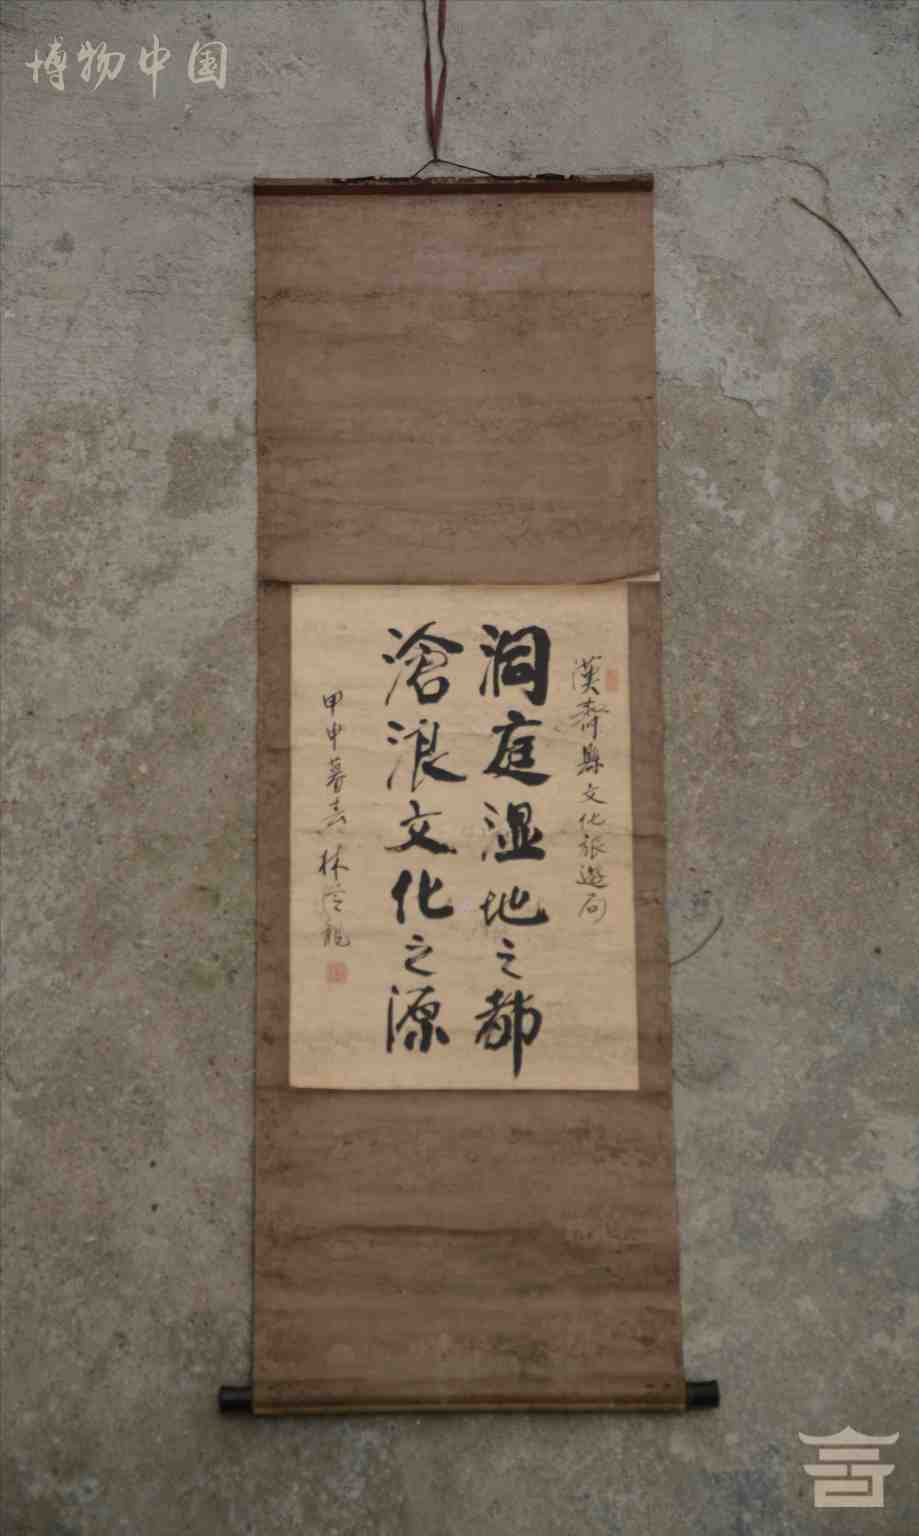 博物中国
漢壽縣文化旅遊局
洞庭湿地之都
滄浪文化之源
甲申暮春 林